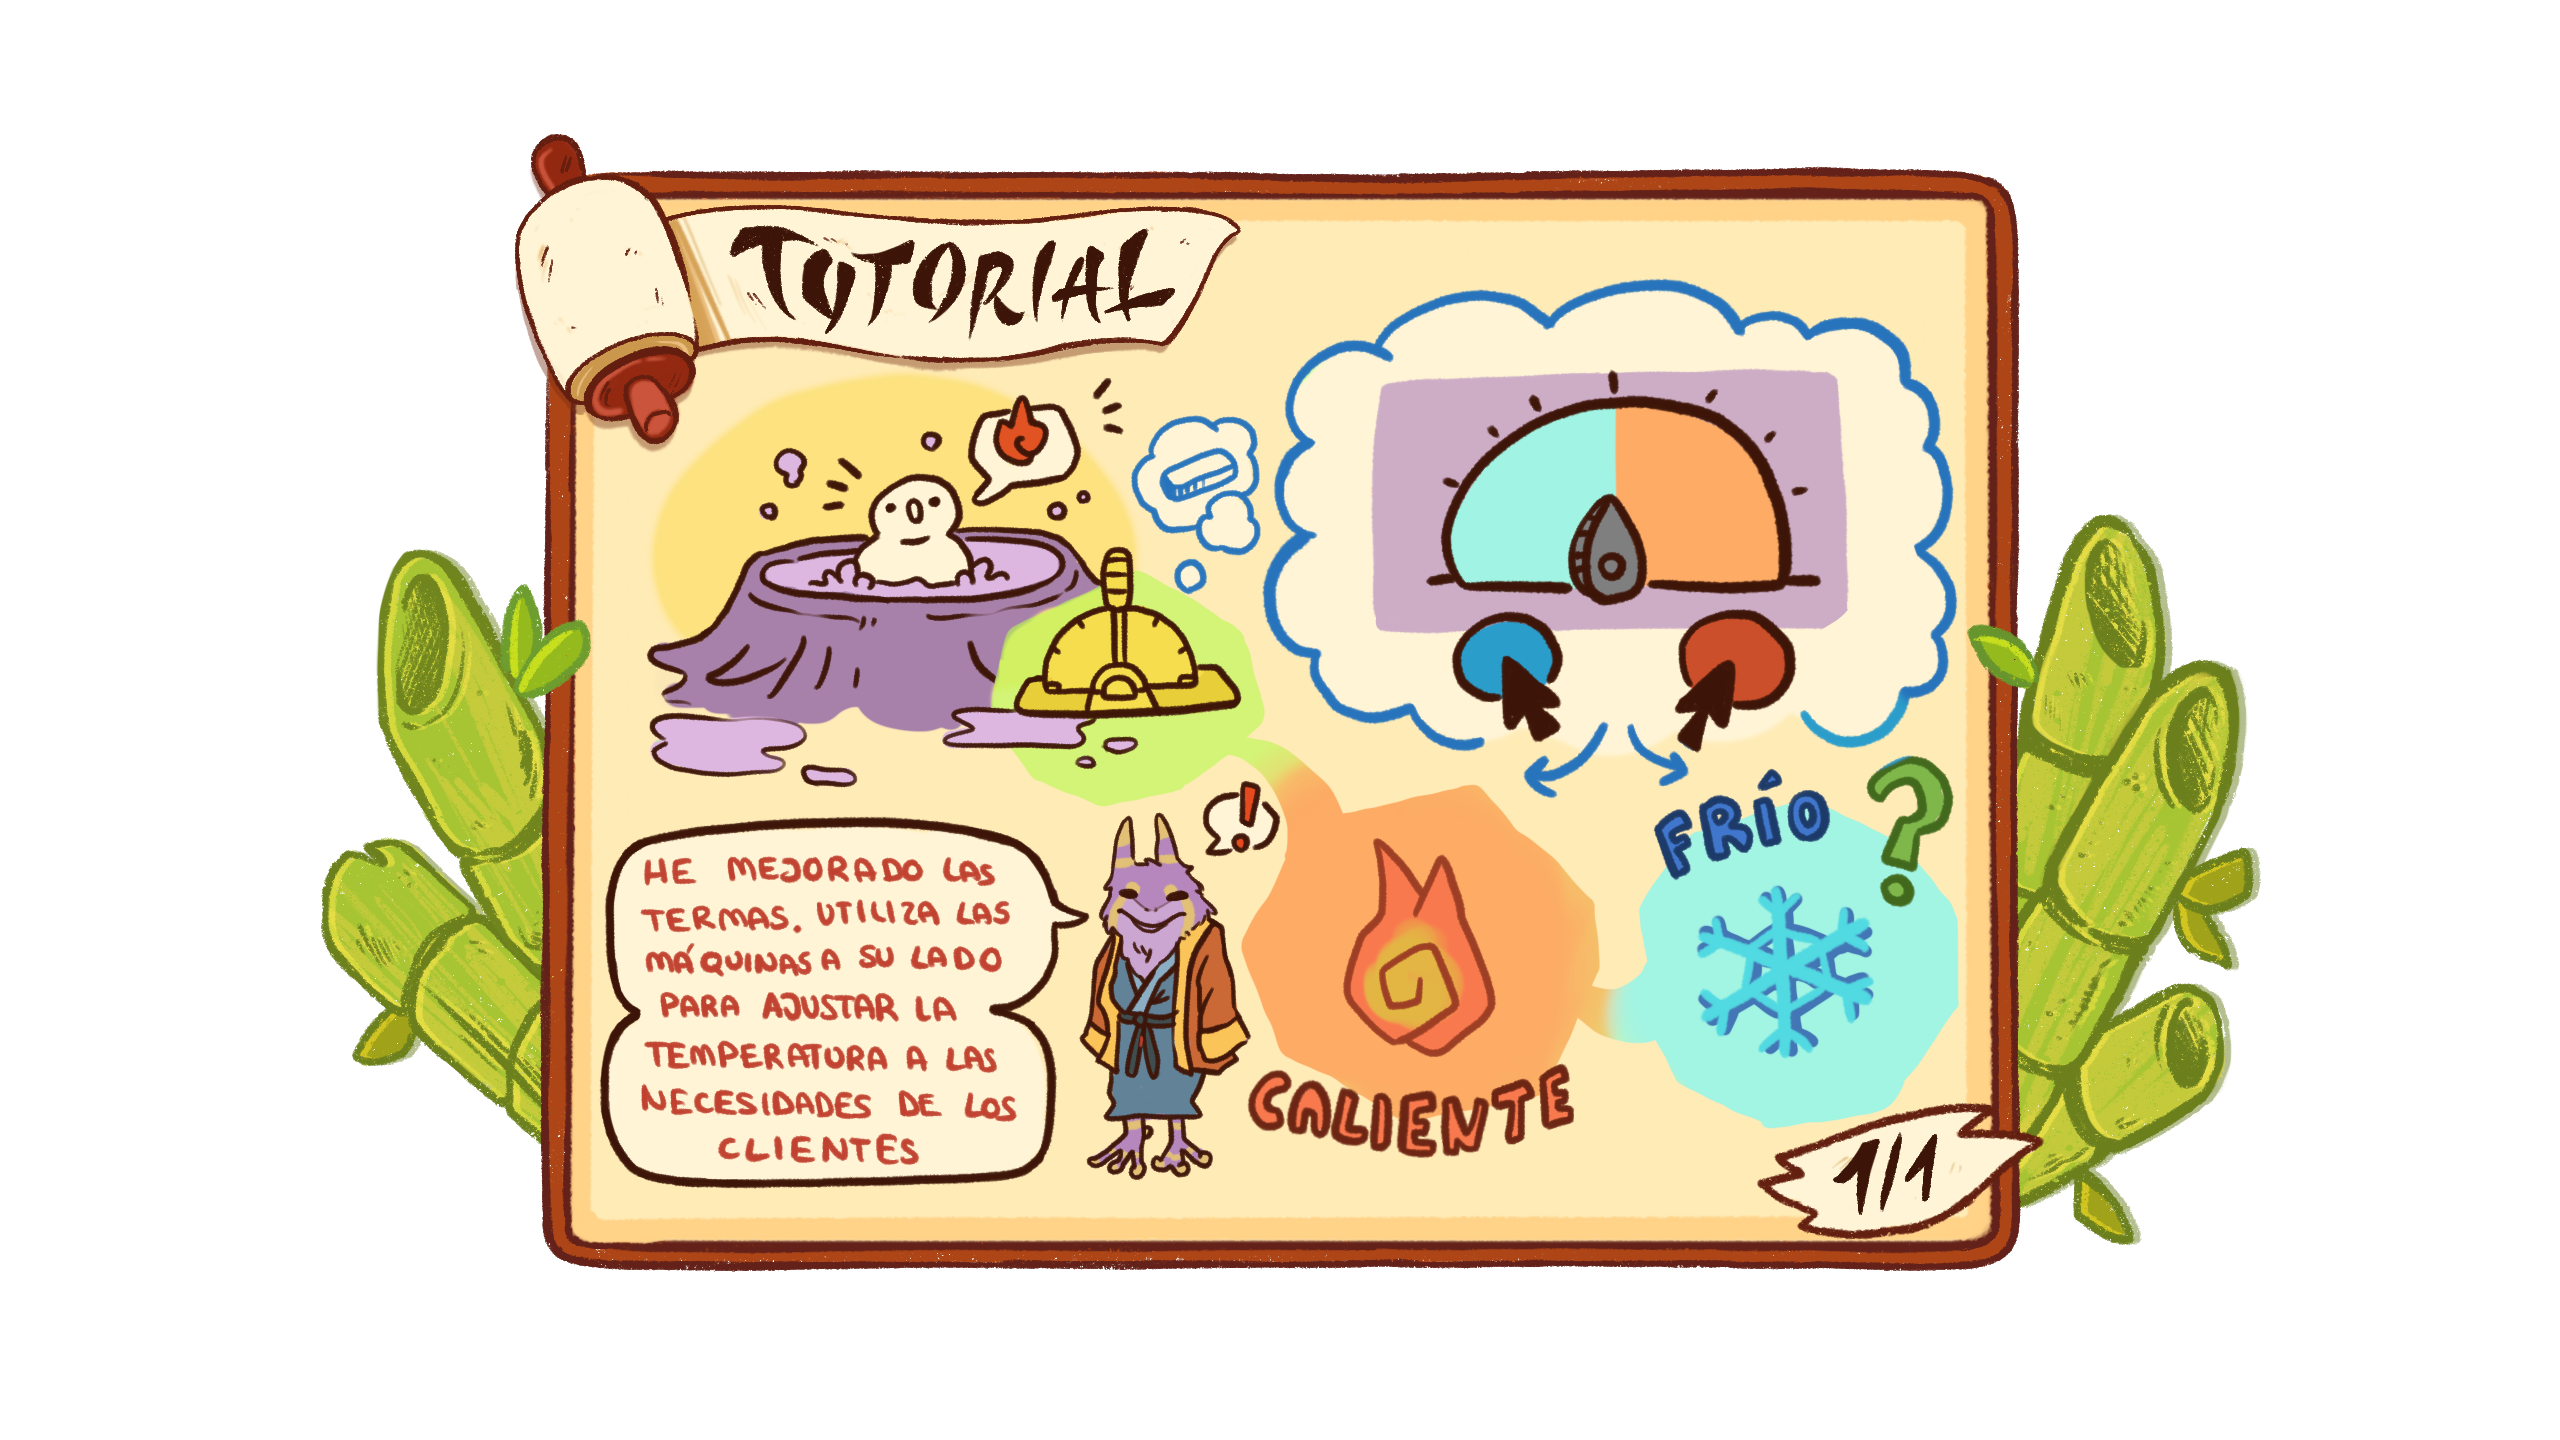 TUTORIAL
HE MEJORADO LAS
TERMAS. UTILIZA LAS
MÁQUINAS A SU LADO
PARA AJUSTAR LA
TEMPERATURA A LAS
NECESIDADES DE LOS
CLIENTES
!
CALIENTE
FRÍO ?
1/1